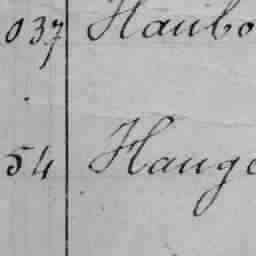 037 Haubo
54 Hauge